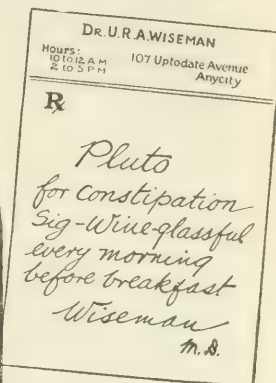 DR. U.R.A. WISEMAN
Hours:
10 to 12 A M
2 to 5 P M
107 Uptodate Avenue
Anycity
℞
Pluto
for constipation
Sig-Wine-glassful
every morning
before breakfast
Wiseman
M.D.